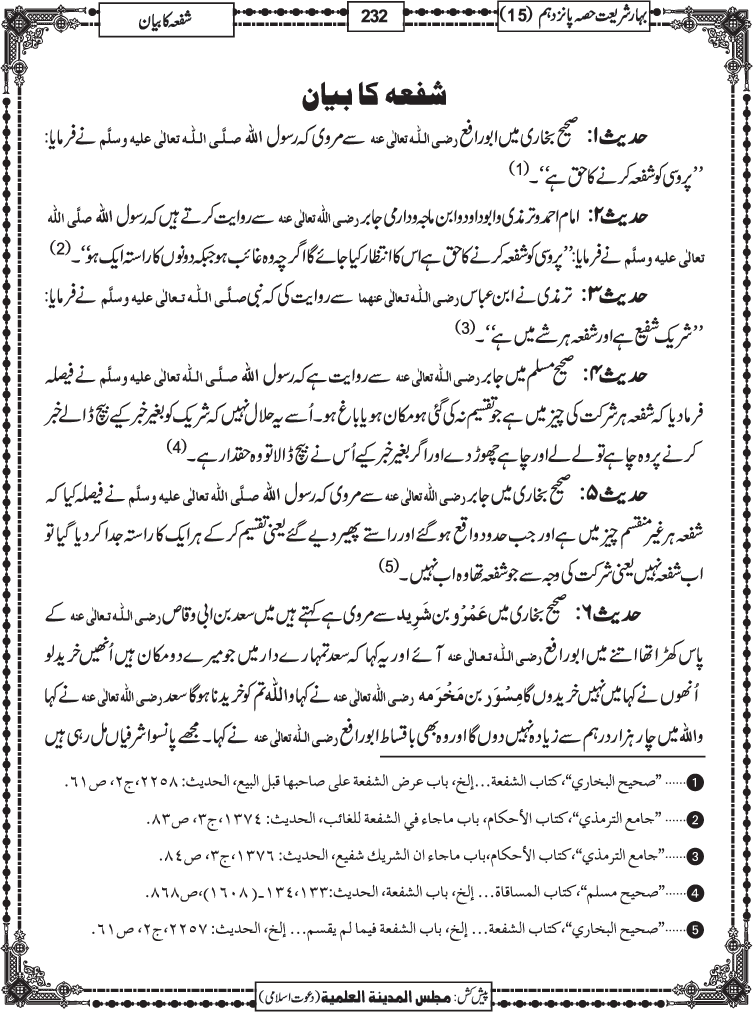 بہار شریعت حصہ پانزدہم (15)
232
شفعہ کا بیان
شفعہ کا بیان
حدیث ۱: صحیح بخاری میں ابورافع رضی اللہ تعالٰی عنہ سے مروی کہ رسول اللہ صلَّی اللہ تعالٰی علیہ وسلَّم نے فرمایا:
’’پروسی کو شفعہ کرنے کا حق ہے‘‘۔ (1)
حدیث ۲: امام احمد و ترمذی و ابوداود و ابن ماجہ و دارمی جابر رضی اللہ تعالٰی عنہ سے روایت کرتے ہیں کہ رسول اللہ صلَّی اللہ
تعالٰی علیہ وسلَّم نے فرمایا: ’’پروسی کو شفعہ کرنے کا حق ہے اس کا انتظار کیا جائے گا اگرچہ وہ غائب ہو جبکہ دونوں کا راستہ ایک ہو‘‘۔ (2)
حدیث ۳: ترمذی نے ابن عباس رضی اللہ تعالٰی عنھما سے روایت کی کہ نبی صلَّی اللہ تعالٰی علیہ وسلَّم نے فرمایا:
’’شریک شفیع ہے اور شفعہ ہر شے میں ہے‘‘۔ (3)
حدیث ۴: صحیح مسلم میں جابر رضی اللہ تعالٰی عنہ سے روایت ہے کہ رسول اللہ صلَّی اللہ تعالٰی علیہ وسلَّم نے فیصلہ
فرما دیا کہ شفعہ ہر شرکت کی چیز میں ہے جو تقسیم نہ کی گئی ہو مکان ہو یا باغ ہو۔ اُسے یہ حلال نہیں کہ شریک کو بغیر خبر کیے بیچ ڈالے خبر
کرنے پر وہ چاہے تو لے لے اور چاہے چھوڑ دے اور اگر بغیر خبر کیے اُس نے بیچ ڈالا تو وہ حقدار ہے۔ (4)
حدیث ۵: صحیح بخاری میں جابر رضی اللہ تعالٰی عنہ سے مروی کہ رسول اللہ صلَّی اللہ تعالٰی علیہ وسلَّم نے فیصلہ کیا کہ
شفعہ ہر غیر منقسم چیز میں ہے اور جب حدود واقع ہوگئے اور راستے پھیر دیے گئے یعنی تقسیم کرکے ہر ایک کا راستہ جدا کر دیا گیا تو
اب شفعہ نہیں یعنی شرکت کی وجہ سے جو شفعہ تھا وہ اب نہیں۔ (5)
حدیث ۶: صحیح بخاری میں عَمْرْو بن شَرِید سے مروی ہے کہتے ہیں میں سعد بن ابی وقاص رضی اللہ تعالٰی عنہ کے
پاس کھڑا تھا اتنے میں ابورافع رضی اللہ تعالٰی عنہ آئے اور یہ کہا کہ سعد تمہارے دار میں جو میرے دو مکان ہیں اُنھیں خرید لو
اُنھوں نے کہا میں نہیں خریدوں گا مِسْوَر بن مَخْرَمہ رضی اللہ تعالٰی عنہ نے کہا واللہ تم کو خریدنا ہوگا سعد رضی اللہ تعالٰی عنہ نے کہا
واللہ میں چار ہزار درہم سے زیادہ نہیں دوں گا اور وہ بھی باقساط ابورافع رضی اللہ تعالٰی عنہ نے کہا۔ مجھے پانسو اشرفیاں مل رہی ہیں
1 ......”صحیح البخاري“، کتاب الشفعة...إلخ، باب عرض الشفعة علی صاحبها قبل البیع، الحدیث: ۲۲۵۸، ج۲، ص۶۱.
2 ......”جامع الترمذي“، کتاب الأحکام، باب ماجاء في الشفعة للغائب، الحدیث: ۱۳۷۴، ج۳، ص۸۳.
3 ......”جامع الترمذي“، کتاب الأحکام، باب ماجاء ان الشریك شفیع، الحدیث: ۱۳۷۶، ج۳، ص۸۴.
4 ......”صحیح مسلم“، کتاب المساقاة... إلخ، باب الشفعة، الحدیث: ۱۳۳،۱۳۴ـ(۱۶۰۸)، ص۸۶۸.
5 ......”صحیح البخاري“، کتاب الشفعة... إلخ، باب الشفعة فیما لم یقسم... إلخ، الحدیث: ۲۲۵۷، ج۲، ص۶۱.
پیش کش: مجلس المدینة العلمیة (دعوت اسلامی)